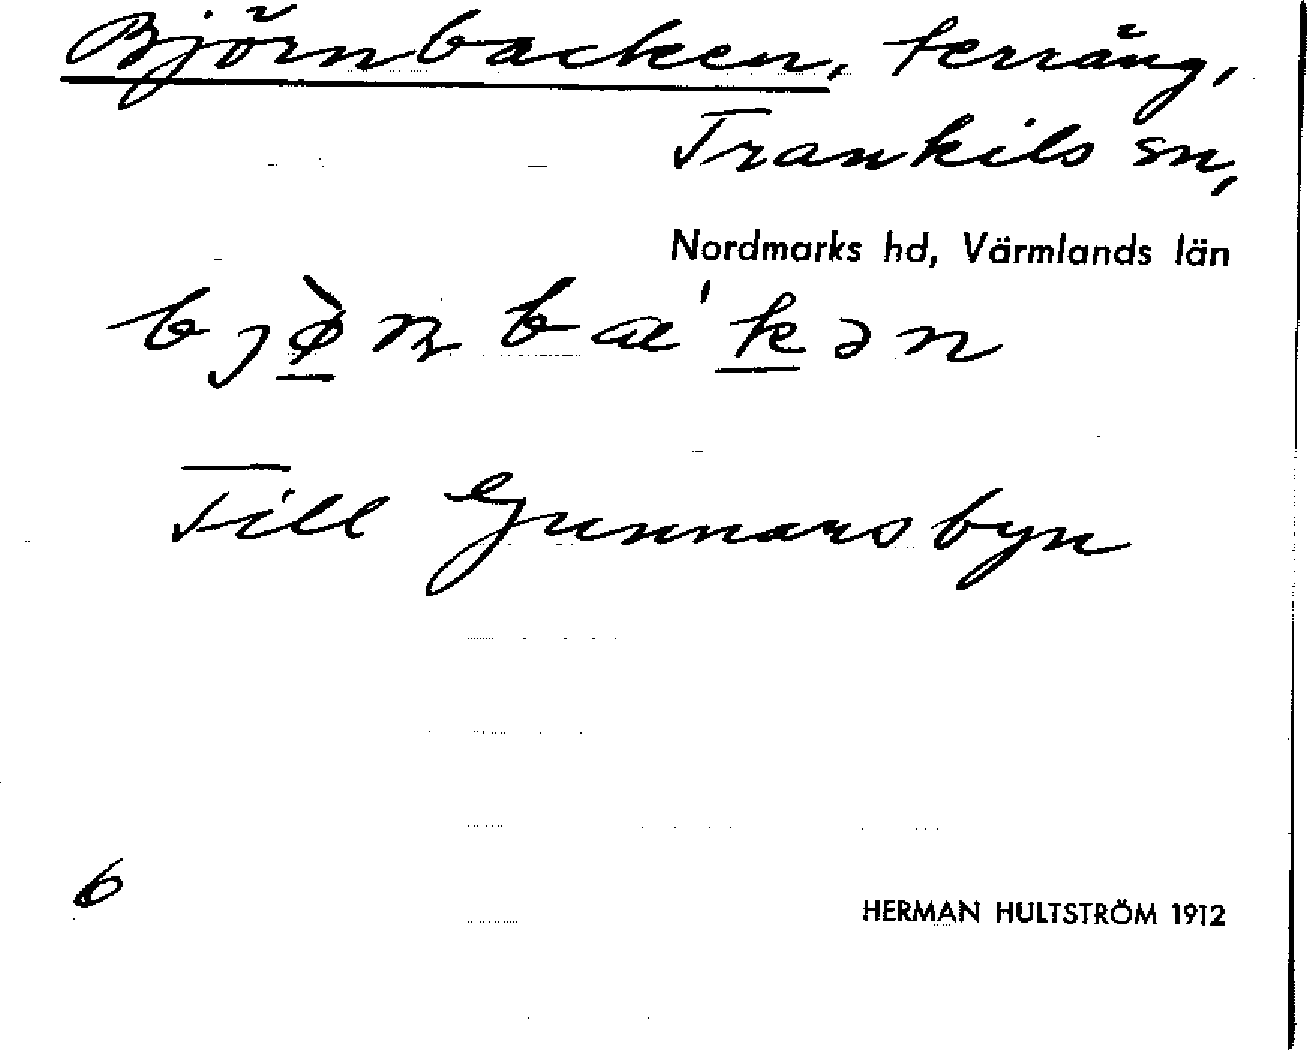 Björnbacken, terräng,
Trankils sn,
Nordmarks hd, Värmlands län
bjø̀ɳbæ'kən
Till Gunnarsbyn
6
HERMAN HULTSTRÖM 1912